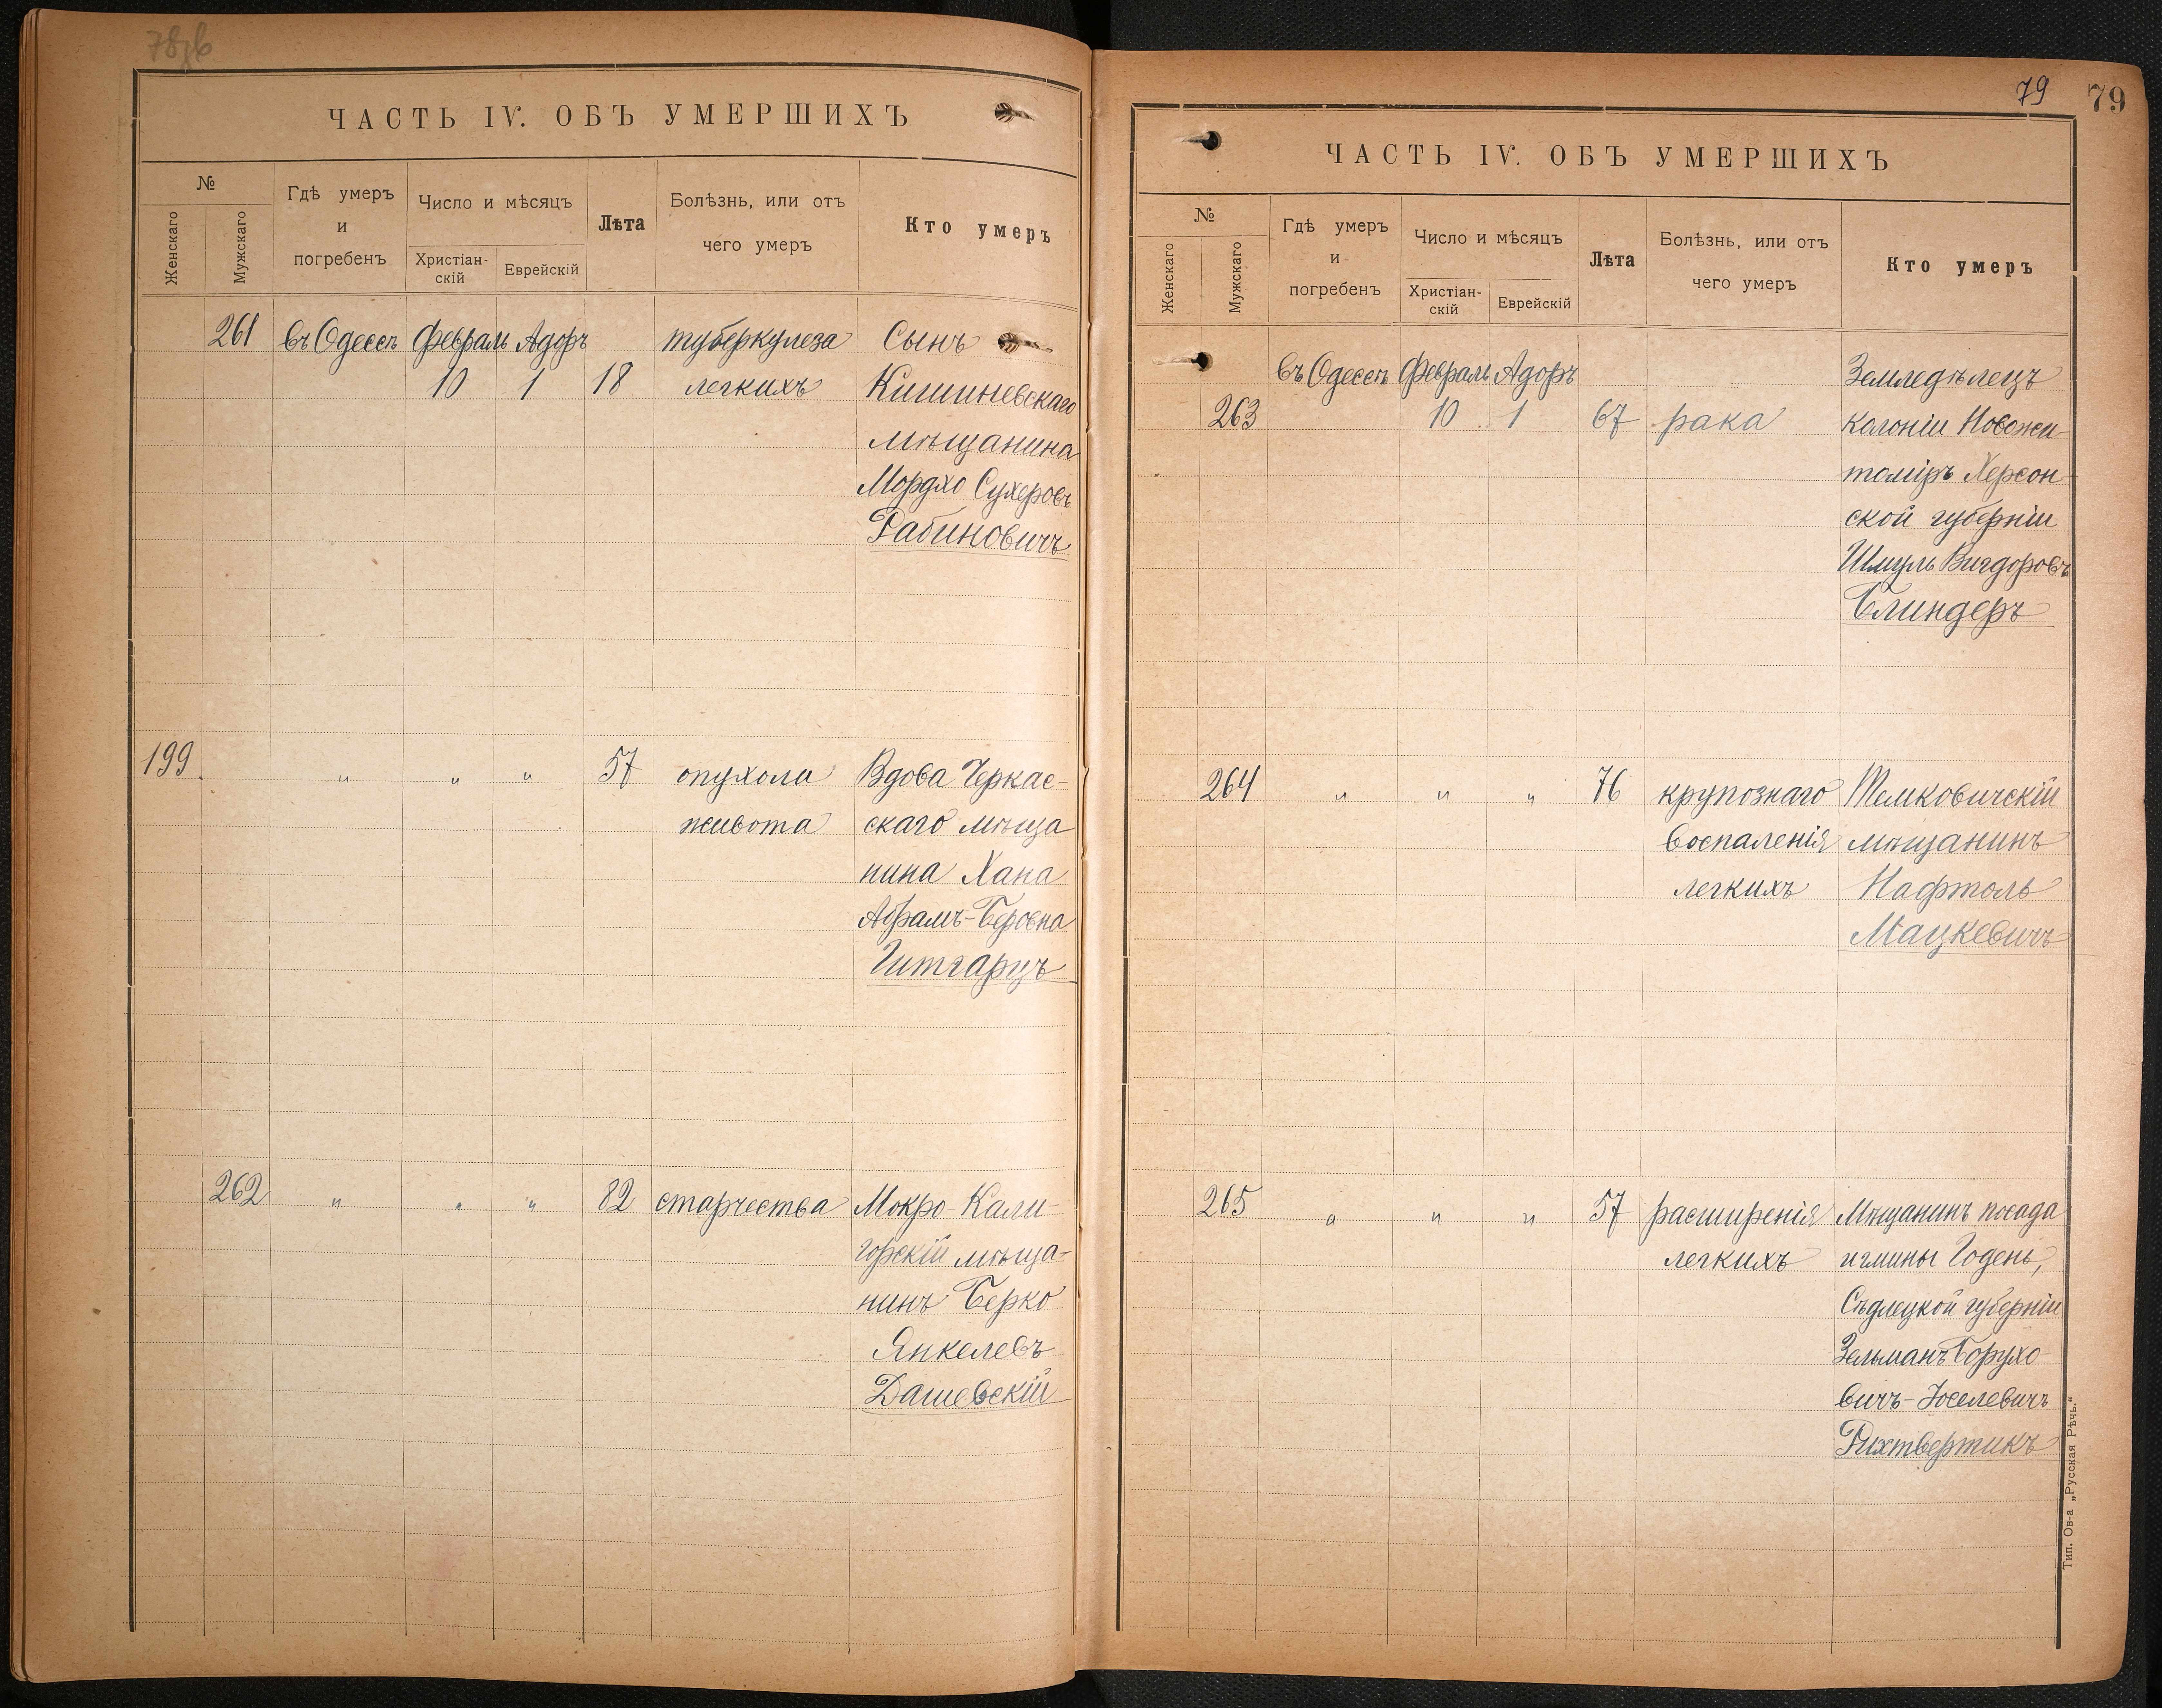 78об
ЧАСТЬ IV. ОБЪ УМЕРШИХЪ
№
Женскаго
Мужскаго
Гдѣ умеръ
и
погребенъ
Число и мѣсяцъ
Христіан-
скій
Еврейскій
Лѣта
Болѣзнь, или отъ
чего умеръ
Кто умеръ
261 въ Одессѣ Февраль Адоръ туберкулеза Сынъ
10 1 18 легкихъ Кишиневскаго
мѣщанина
Мордхо Сухеровъ
Рабиновичъ
199. " " " 57 опухоли Вдова Черкас-
живота скаго мѣща
нина Хана
Абрамъ-Беровна
Гитгарцъ
262 " " " 82 старчества Мокро-Кали-
горскій мѣща-
нинъ Берко
Янкелевъ
Дашевскій
79 79
ЧАСТЬ IV. ОБЪ УМЕРШИХЪ
№
Женскаго
Мужскаго
Гдѣ умеръ
и
погребенъ
Число и мѣсяцъ
Христіан-
скій
Еврейскій
Лѣта
Болѣзнь, или отъ
чего умеръ
Кто умеръ
въ Одессѣ Февраль Адоръ Земледѣлецъ
263 10 1 67 рака колоніи Новожи-
томіръ Херсон-
ской губерніи
Шмуль Вигдоровъ
Блиндеръ
264 " " " 76 крупознаго Темковичскій
воспаленія мѣщанинъ
легкихъ Нафтоль
Мацкевичъ
265 " " " 57 расширенія Мѣщанинъ посада
легкихъ и гмины Годень,
Сѣдлецкой губерніи
Зельманъ Борухо-
вичъ-Іоселевичъ
Рихтвертикъ
Тип. Ов-а „Русская Рѣчь."